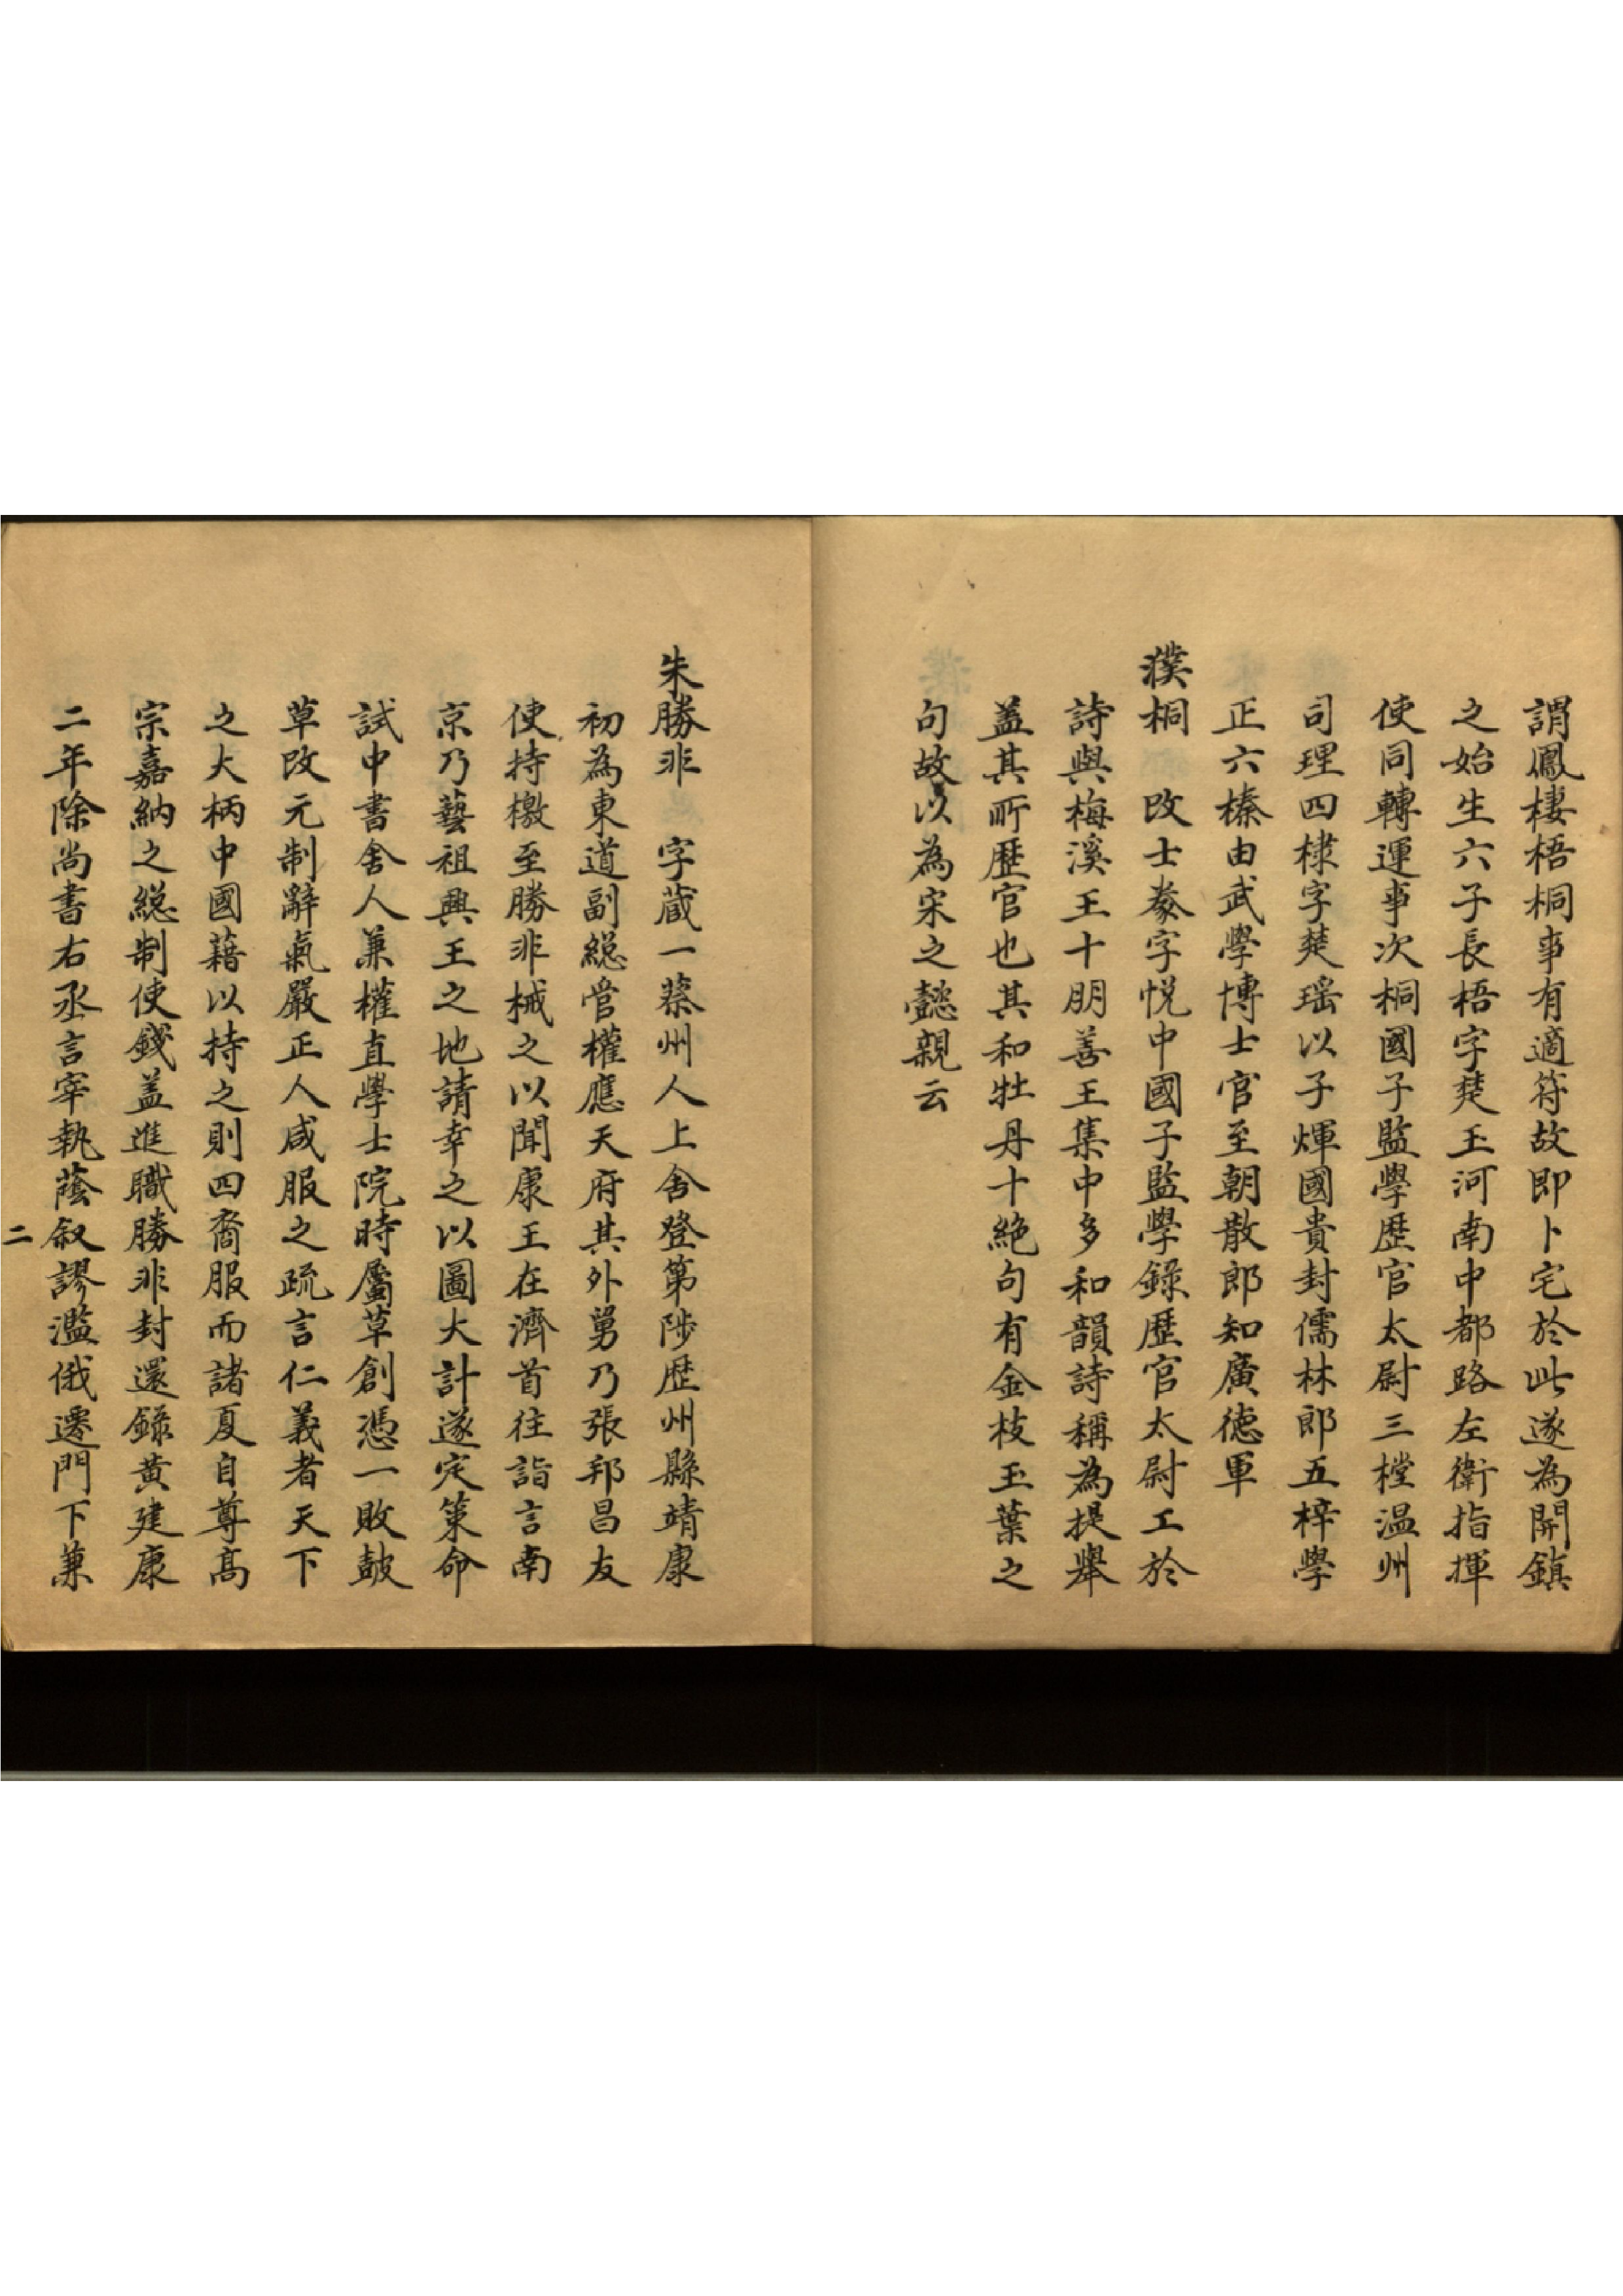 謂鳳棲梧桐事有適符故即卜宅於此遂為開鎮
之始生六子長梧字楚玉河南中都路左衛指揮
使同轉運事次桐國子監學歷官太尉三樘温州
司理四棣字楚瑶以子煇國貴封儒林郎五梓學
正六榛由武學博士官至朝散郎知廣德軍
濮桐　改士豢字悦中國子監學錄歷官太尉工於
詩與梅溪王十朋善王集中多和韻詩稱為提舉
盖其所歷官也其和牡丹十絶句有金枝玉葉之
句故以為宋之懿親云
朱勝非　字蔵一蔡州人上舍登第陟歴州縣靖康
初為東道副總管權應天府其外舅乃張邦昌友
使持檄至勝非械之以聞康王在濟首往詣言南
京乃藝祖興王之地請幸之以圖大計遂定策命
試中書舍人兼權直學士院時屬草創憑一敗鼓
草改元制辭氣嚴正人咸服之疏言仁義者天下
之大柄中國藉以持之則四裔服而諸夏自尊高
宗嘉納之總制使錢盖進職勝非封還錄黄建康
二年除尚書右丞言宰執蔭叙謬濫俄遷門下兼
二